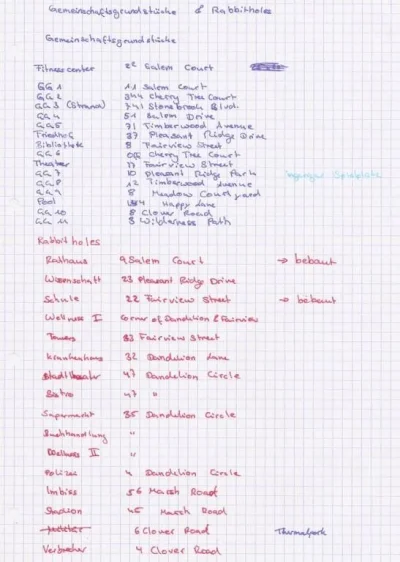 Gemeinschaftsgrundstücke & Rabbitholes
Gemeinschaftsgrundstücke
Fitnesscenter 22 Salem Court
GG 1 11 Salem Court
GG 2 344 Cherry Tree Court
GG 3 (Strand) 741 Stonebrook Blvd.
GG 4 51 Salem Drive
GG 5 71 Timberwood Avenue
Friedhof 37 Pleasant Ridge Drive
Bibliothek 8 Fairview Street
GG 6 Cherry Tree Court
Theater 17 Fairview Street
GG 7 10 Pleasant Ridge Park
GG 8 12 Timberwood Avenue
GG 9 8 Meadow Courtyard
Pool Happy Lane
GG 10 8 Clover Road
GG 11 3 Wilderness Path
Rabbitholes
Rathaus 9 Salem Court → bebaut
Wissenschaft 23 Pleasant Ridge Drive
Schule 22 Fairview Street → bebaut
Wellness I Corner of Dandelion & Fairview
Towers 33 Fairview Street
Krankenhaus 32 Dandelion Lane
Stadttheater 47 Dandelion Circle
Bistro 47 "
Supermarkt 35 Dandelion Circle
Buchhandlung "
Wellness II "
Polizei 4 Dandelion Circle
Imbiss 56 Marsh Road
Stadion 45 Marsh Road
6 Clover Road Thermalpark
Verbrecher 4 Clover Road